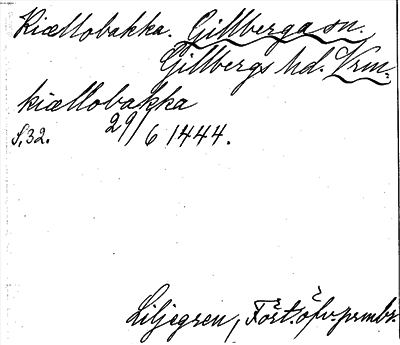 Kiællobakka. Gillberga sn.
Gillbergs hd. Vrm.
kiællobakka
S. 32. 29/6 1444.
Liljegren, Fört. öfv. prmbr.